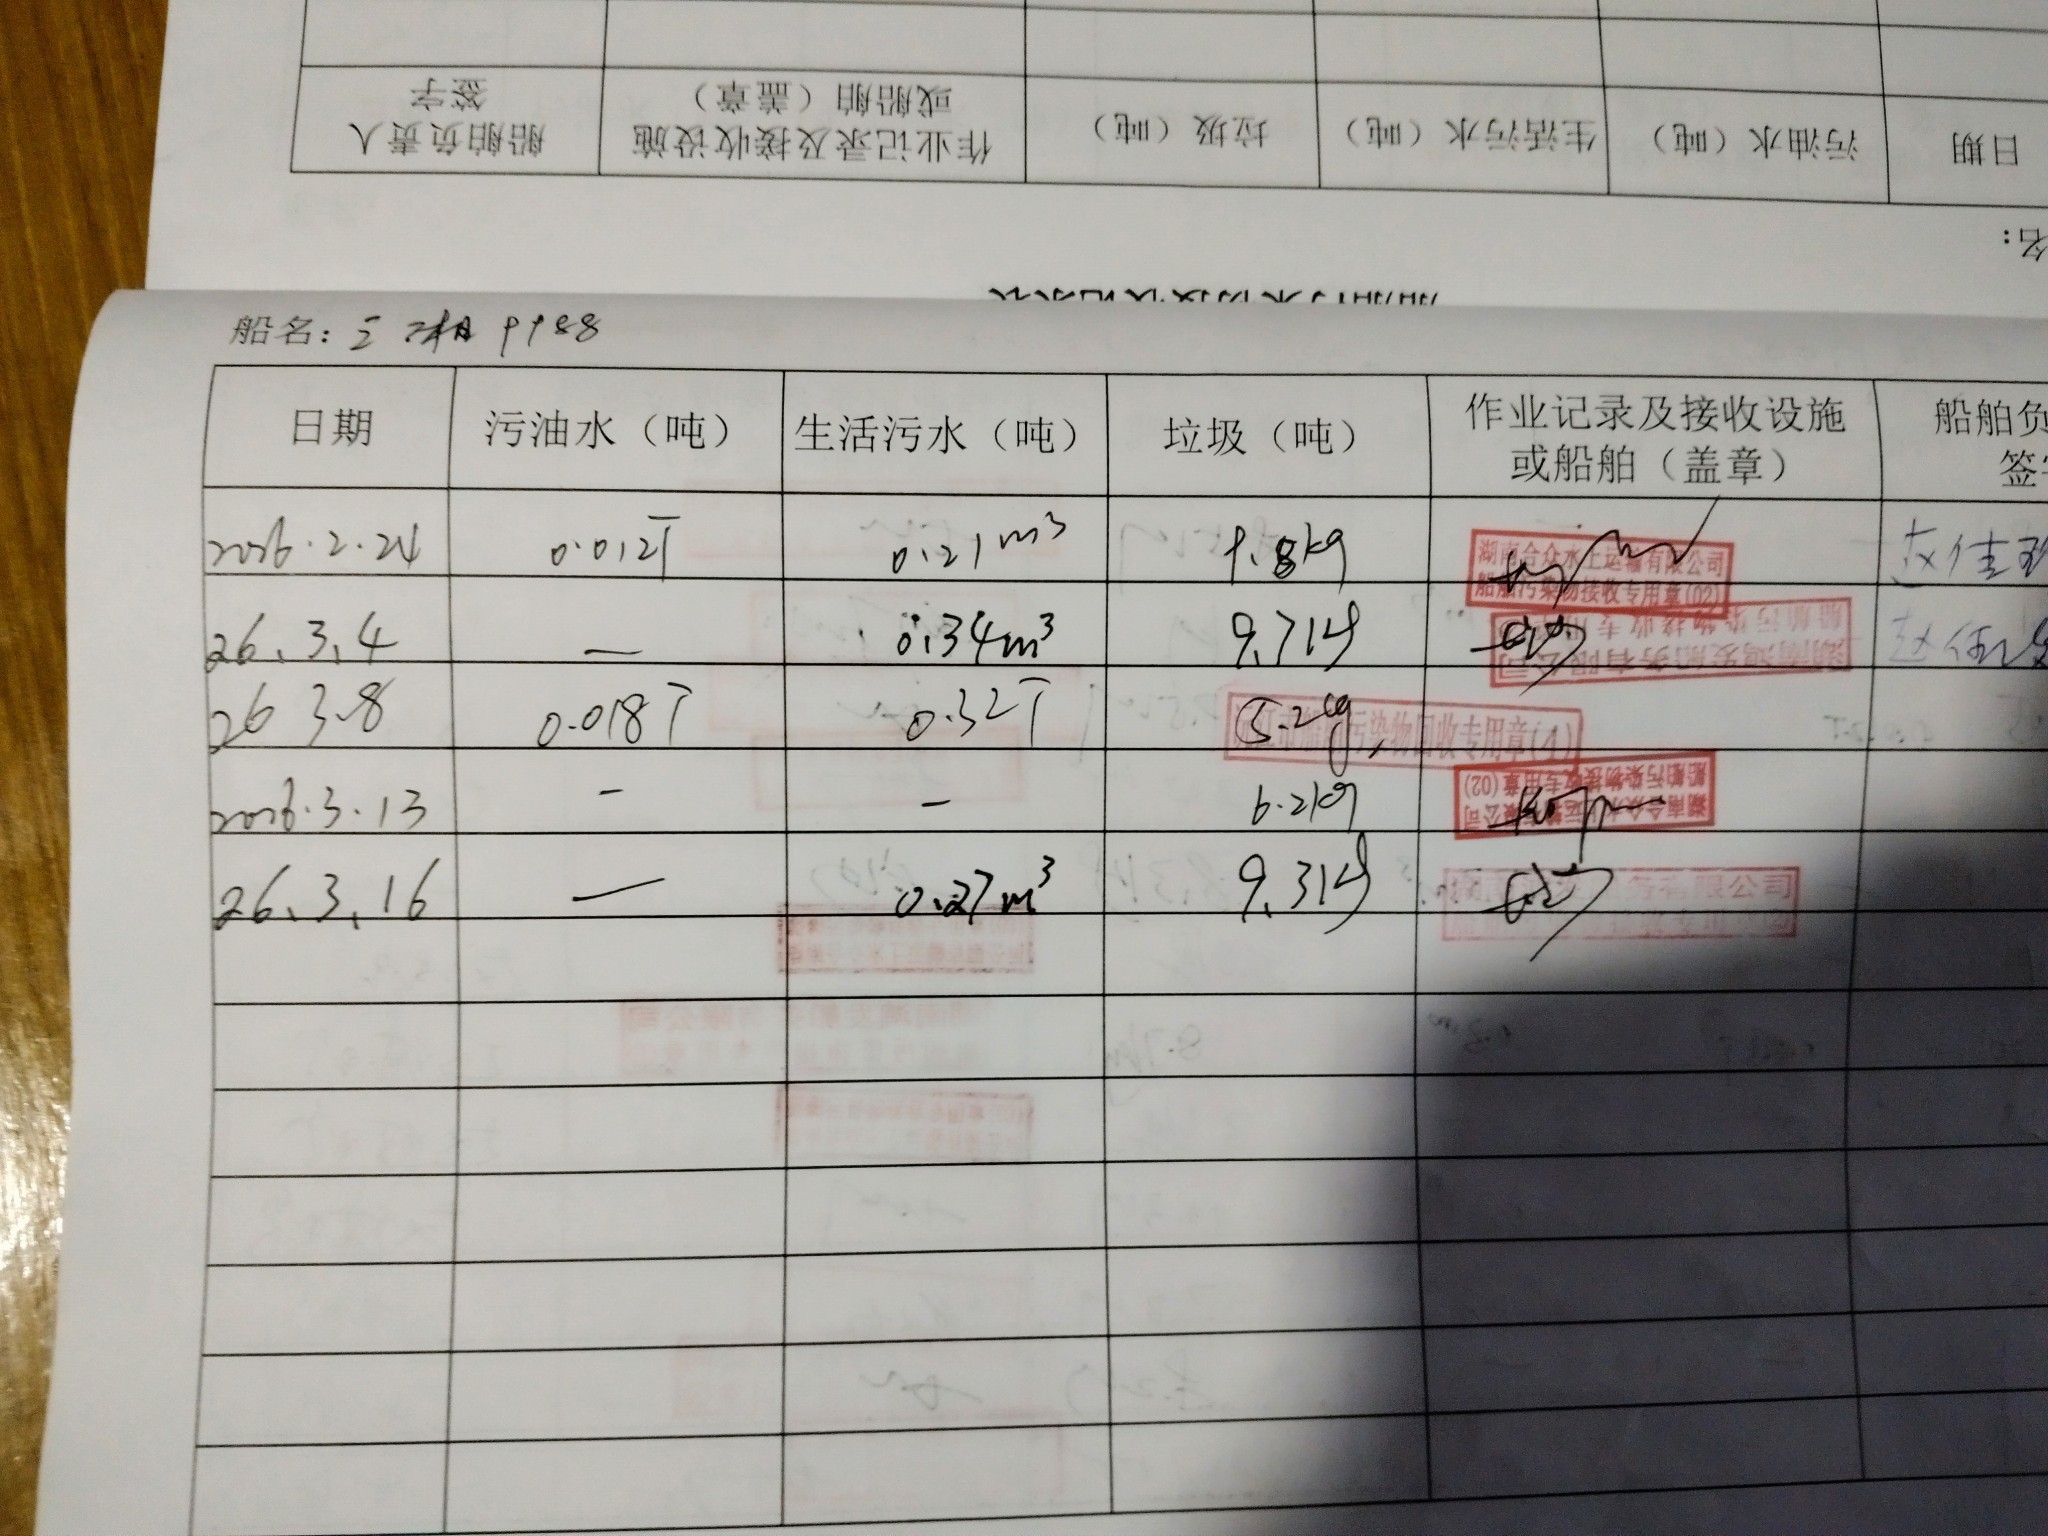 船舶负责人
签字
作业记录及接收设施
或船舶（盖章）
垃圾（吨）
生活污水（吨）
污油水（吨）
日期
名：
船名：三湘9988
日期 污油水（吨） 生活污水（吨） 垃圾（吨） 作业记录及接收设施
或船舶（盖章） 船舶负
签字
2026.2.24 0.012T 0.21m³ 1.8kg
湖南合众水上运输有限公司
船舶污染物接收专用章(02)
26.3.4 — 0.34m³ 9.7kg
湖南鸿发船务有限公司
船舶污染物接收专用章
26 3.8 0.018T 0.32T 5.2kg
沅江市船舶污染物回收专用章(1)
2026.3.13 - - 6.2kg
湖南合众水上运输有限公司
船舶污染物接收专用章(02)
26.3.16 — 0.27m³ 9.3kg
务有限公司